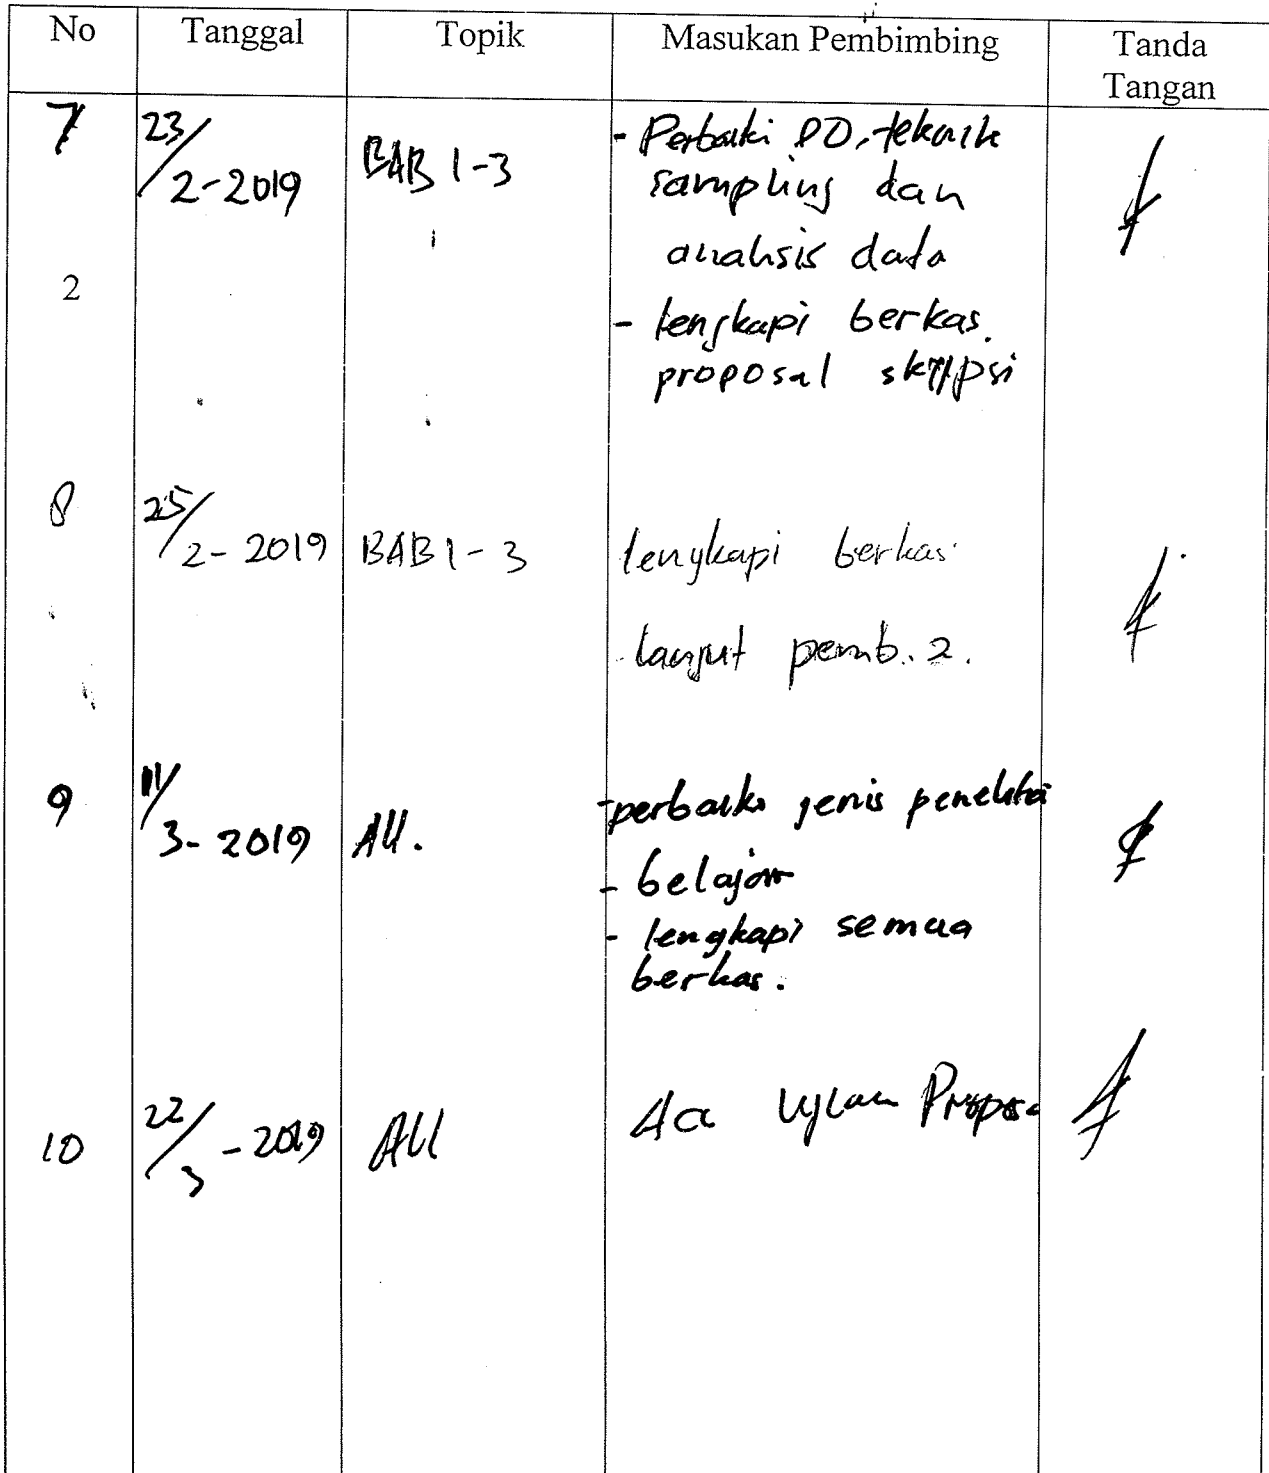 No Tanggal Topik Masukan Pembimbing Tanda
Tangan
7 23/2-2019 BAB 1-3 - Perbaiki DO, teknik
sampling dan
analisis data
2
- lengkapi berkas
proposal skripsi
8 25/2-2019 BAB 1-3 lengkapi berkas
lanjut pemb. 2.
9 11/3-2019 All. - perbaiki jenis peneliti
- belajar
- lengkapi semua
berkas.
10 22/3-2019 All Ujian Propos